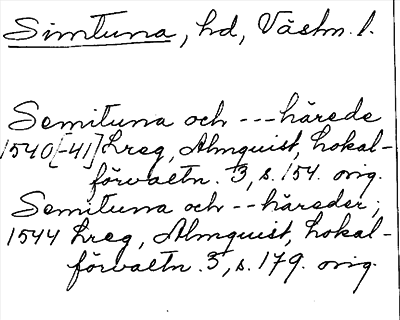 Simtuna, hd, Västm. l.
Semituna och --- härede
1540[-41] Lreg, Almquist, Lokal-
förvaltn. 3, s. 154. orig.
Semituna och -- häreder;
1544 Lreg, Almquist, Lokal-
förvaltn. 3, s. 179. orig.